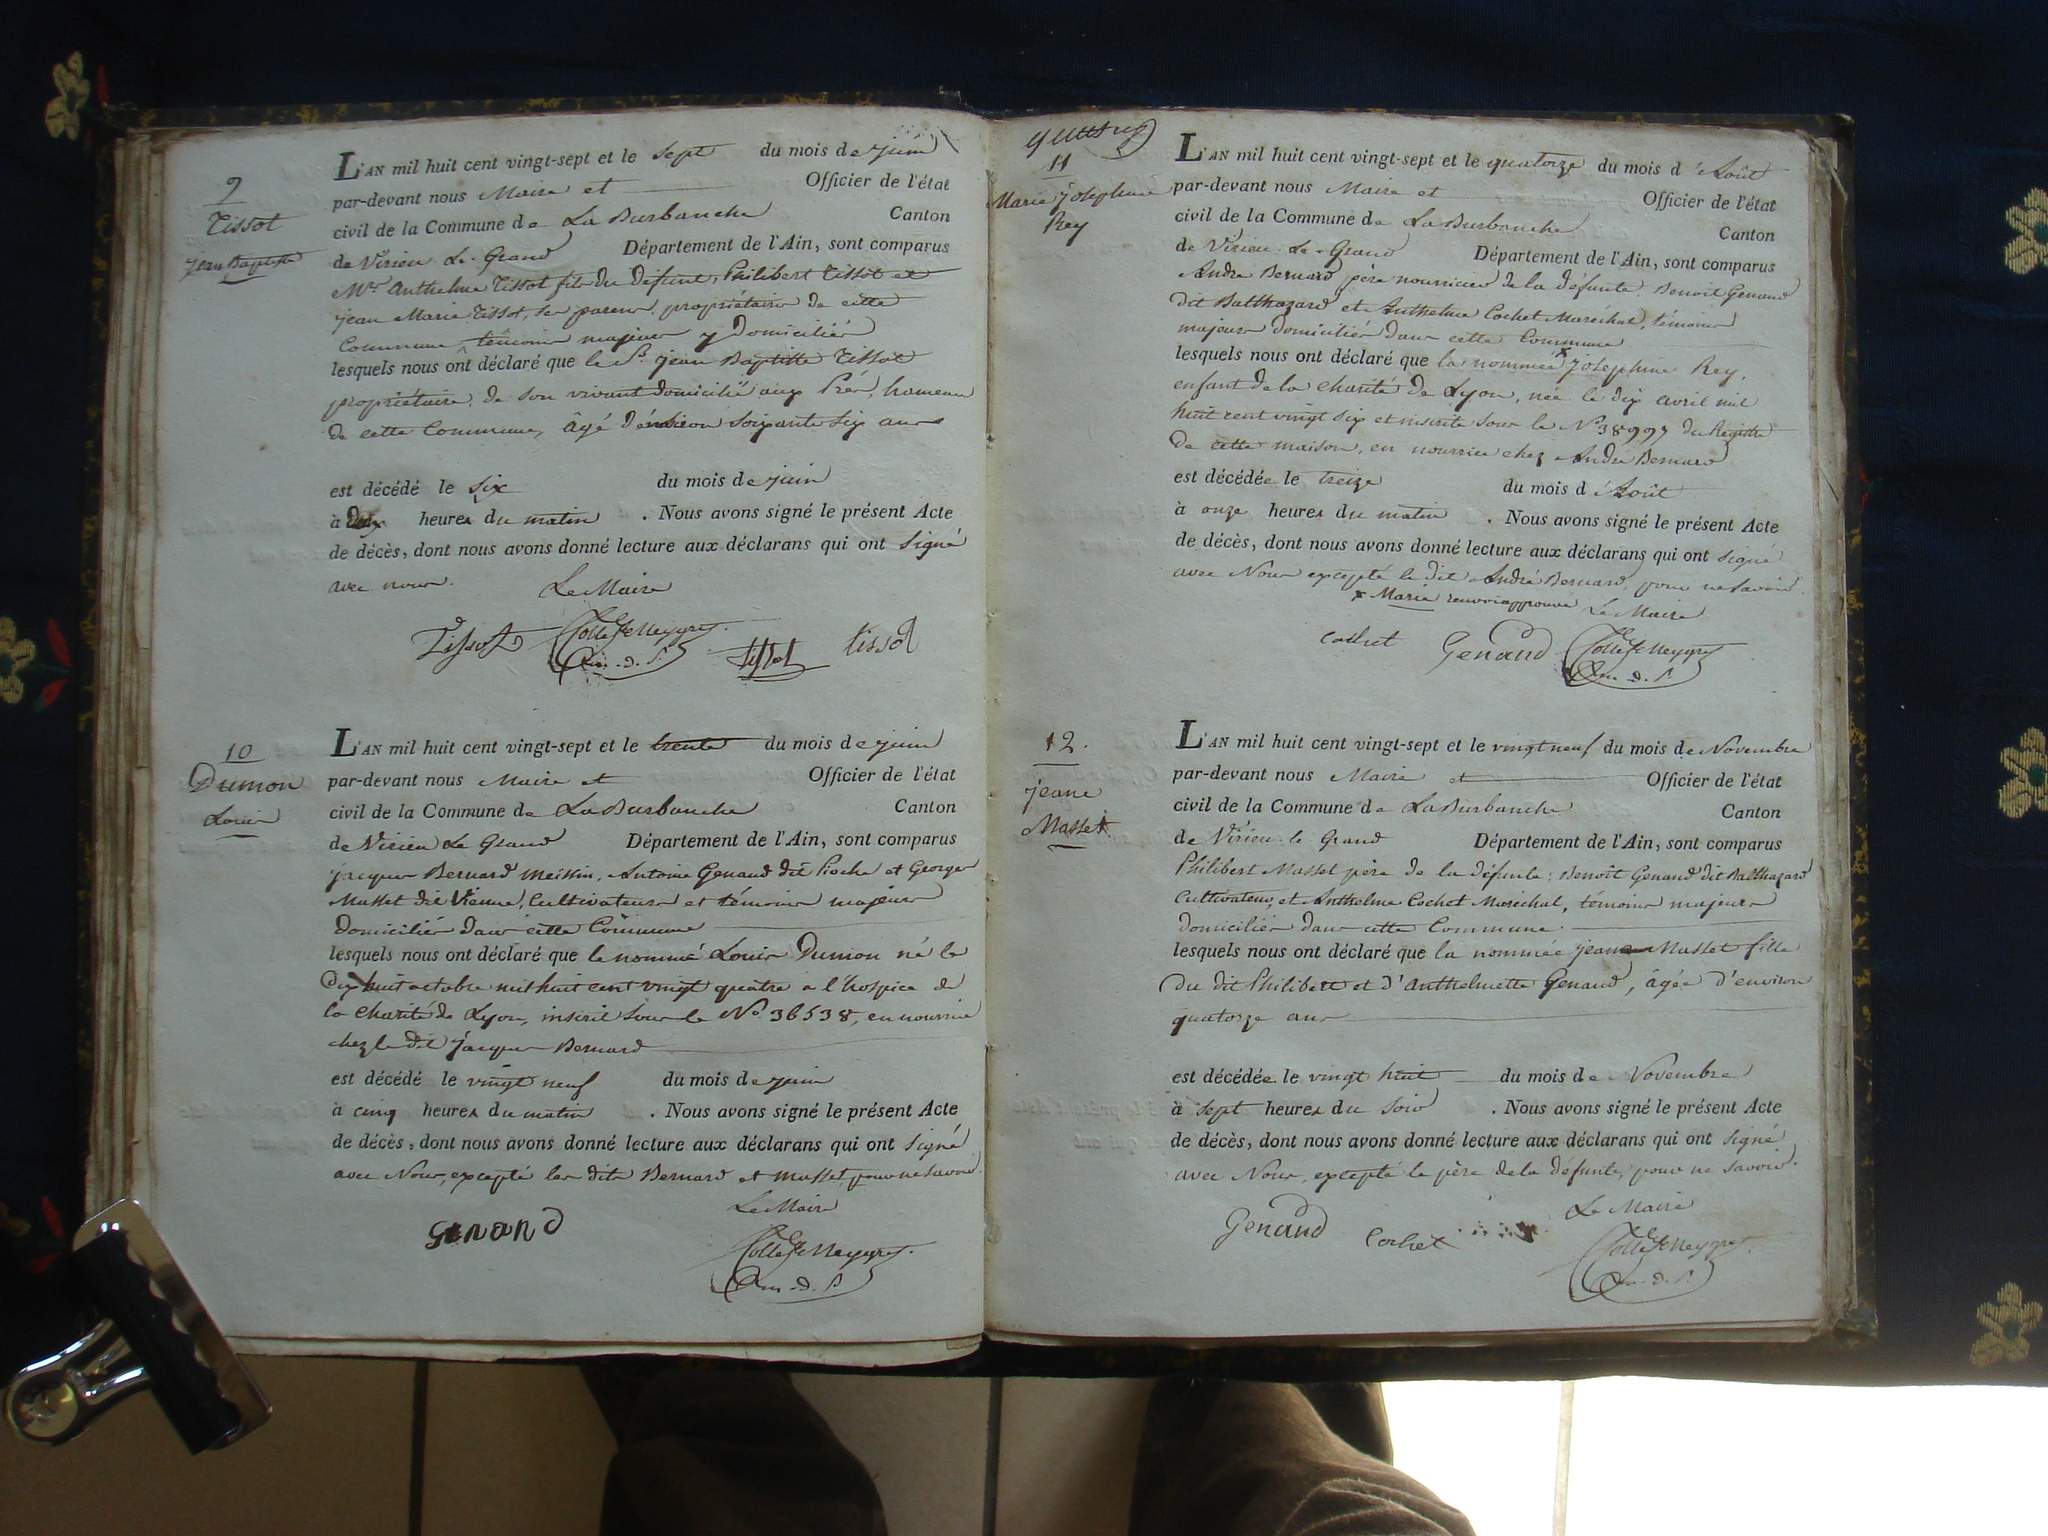 9
Tissot
Jean Baptiste
L'AN mil huit cent vingt-sept et le sept du mois de juin
par-devant nous Maire et Officier de l'état
civil de la Commune de La Burbanche Canton
de Virieu Le Grand Département de l'Ain, sont comparus
Mrs. Anthelme Tissot fils du défunt, Philibert Tissot et
jean Marie Tissot, ses parens, propriétaires de cette
Commune témoins majeurs y domiciliés
lesquels nous ont déclaré que le Sr. jean Baptiste Tissot
propriétaire, de son vivant domicilié aux Prés, hameau
de cette Commune, âgé d'environ soixante six ans
est décédé le six du mois de juin
à heures du matin . Nous avons signé le présent Acte
de décès, dont nous avons donné lecture aux déclarans qui ont signé
avec nous. Le Maire
Tissot Tissot tissot
10
Dumon
Louis
L'AN mil huit cent vingt-sept et le trente du mois de juin
par-devant nous Maire et Officier de l'état
civil de la Commune de La Burbanche Canton
de Virieu Le Grand Département de l'Ain, sont comparus
jacques Bernard Antoine Genaud dit Pioche et Georges
Masset dit Vienne, Cultivateurs et témoins majeurs
domiciliés dans cette Commune
lesquels nous ont déclaré que le nommé Louis Dumon né le
dix huit octobre mil huit cent vingt quatre a l'hospice de
la charité de Lyon, inscrit sous le No. 36538, en nourrice
chez le dit jacques Bernard
est décédé le vingt neuf du mois de juin
à cinq heures du matin . Nous avons signé le présent Acte
de décès, dont nous avons donné lecture aux déclarans qui ont signé
avec Nous, excepté les dits Bernard et Masset, pour ne savoir.
Le Maire
Genand
11
Marie josephine
Rey
L'AN mil huit cent vingt-sept et le quatorze du mois d'Août
par-devant nous Maire et Officier de l'état
civil de la Commune de La Burbanche Canton
de Virieu Le Grand Département de l'Ain, sont comparus
André Bernard père nourricier de la défunte, Benoit Genaud
dit Balthazard et Anthelme Cochet Maréchal, témoins
majeurs domiciliés dans cette Commune
lesquels nous ont déclaré que la nommée x josephine Rey,
enfant de la charité de Lyon, née le dix avril mil
huit cent vingt six et inscrite sous le No 38997 du Régistre
de cette maison, en nourrice chez André Bernard
est décédée le treize du mois d'Août
à onze heures du matin . Nous avons signé le présent Acte
de décès, dont nous avons donné lecture aux déclarans qui ont signé
avec Nous excepté le dit André Bernard, pour ne savoir.
x Marie renvoi approuvé Le Maire
cochet Genaud
12.
jeane
Masset
L'AN mil huit cent vingt-sept et le vingt neuf du mois de Novembre
par-devant nous Maire et Officier de l'état
civil de la Commune de La Burbanche Canton
de Virieu le Grand Département de l'Ain, sont comparus
Philibert Masset père de la défunte, Benoit Genaud dit Balthazard
Cultivateur, et Anthelme Cochet Maréchal, témoins majeurs
domiciliés dans cette Commune
lesquels nous ont déclaré que la nommée jeane Masset fille
du dit Philibert et d'Anthelmette Genaud, âgée d'environ
quatorze ans
est décédée le vingt huit du mois de Novembre
à sept heures du soir . Nous avons signé le présent Acte
de décès, dont nous avons donné lecture aux déclarans qui ont signé
avec Nous, excepté le père de la défunte, pour ne savoir.
Le Maire
Genaud Cochet